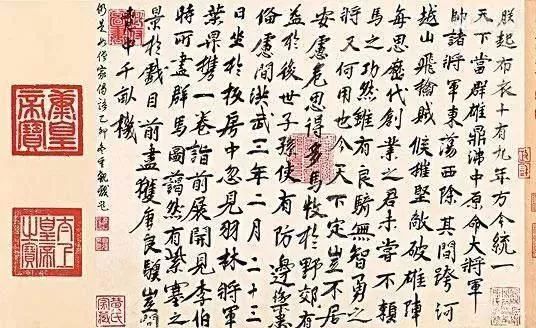 朕起布衣十有九年方今統一
天下當群雄鼎沸中原命大將軍
帥諸將軍東蕩西除其間跨河
越山飛擒賊候摧堅敵破雄陣
每思歷代創業之君未嘗不賴
馬之功然雖有良騎無智勇之
將又何用也今天下定豈不居
安慮危思得多馬牧於野郊有
益於後世子孫使有防邊禦患
備慮間洪武三年二月二十三
日坐於板房中忽見羽林將軍
葉昇攜一卷詣前展開見李伯
時所畫群馬圖藹然有紫塞之
景於戲目前盡獲唐良驥豈問
胸中千畝機
太上皇帝之寶